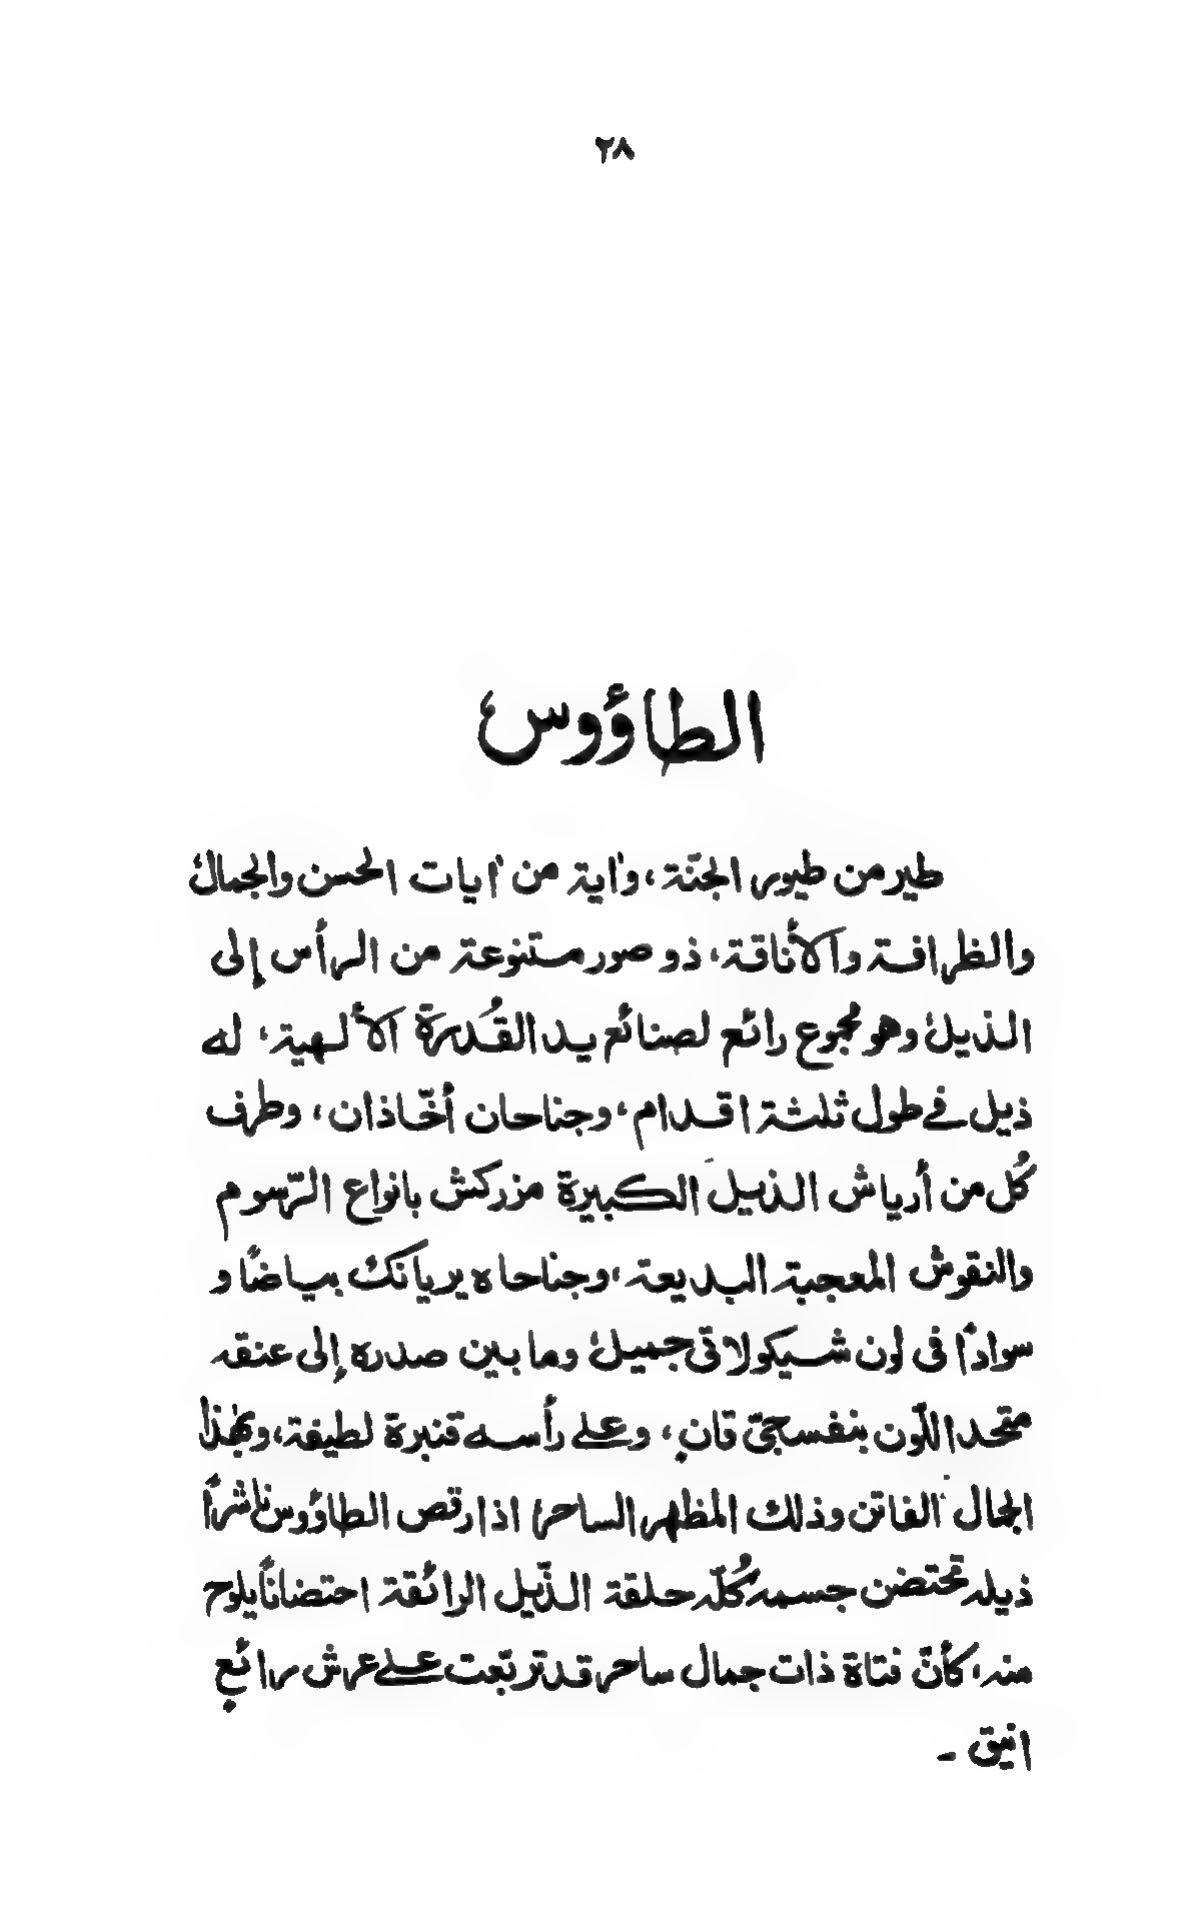 ٢٨
الطاؤوس
طير من طيور الجنّة، واٰية من اٰيات الحسن والجمال
والظرافة والأناقة، ذو صور متنوعة من الرأس إلى
الذيل وهو مجموع رائع لصنائع يد القُدرة الألهية، له
ذيل في طول ثلثة اقدام، وجناحان أخّاذان، وطرف
كُل من أرياش الذيل الكبيرة مزركش بانواع الرّسوم
والنقوش المعجبة البديعة، وجناحاه يريانك بياضًا و
سوادًا في لون شيكولاتى جميل وما بين صدره إلى عنقه
متحد اللّون بنفسجيّ قانٍ، وعلى رأسه قنبرة لطيفة، وبهٰذا
الجال الفاتن وذلك المظهر الساحر، اذا رقص الطاؤوس ناشرًا
ذيله تحتضن جسمه كُلّه حلقة الذّيل الرائقة احتضانًا يلوح
منه، كأنّ فتاة ذات جمال ساحر قد تربّعت على عرش رائعٍ
انيق -